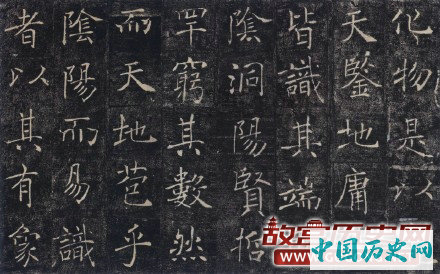 化物是以
天鑒地庸
皆識其端
陰洞陽賢哲
罕窮其數然
而天地苞乎
陰陽而易識
者以其有象
故宫历史网
中国历史网